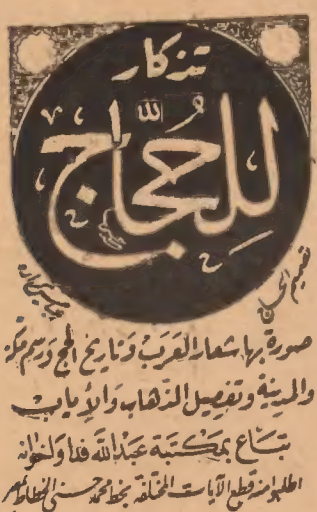 تذكار
لله
للحجاج
تصميم الحاج
عباس كراره
صورة بها شعار العرب وتاريخ الحج ورسم مكة
والمدينة وتفصيل الذهاب والأياب
تباع بمكتبة عبد الله فدا ولخوانه
اطلبوا منه قطع الآيات المختلفة بخط محمد حسنى الخطاط بمصر